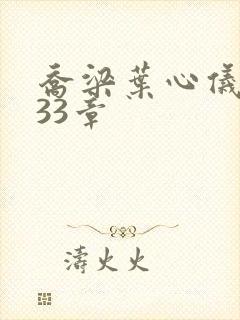 乔梁叶心仪
33章
濤火火